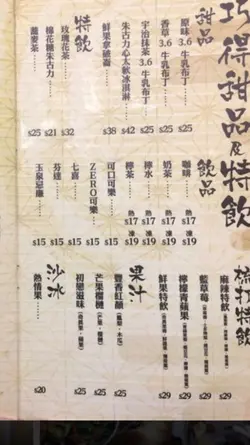 巧得甜品及特飲
甜品
原味 3.6 牛乳布丁…… $25
香草 3.6 牛乳布丁…… $25
宇治抹茶 3.6 牛乳布丁… $25
朱古力心太軟冰淇淋…… $42
鮮果拿破崙…… $38
特飲
玫瑰花茶…… $32
棉花糖朱古力…… $21
蕎麥茶…… $25
飲品
咖啡…… 熱 $17 凍 $19
奶茶…… 熱 $17 凍 $19
檸水…… 熱 $17 凍 $19
檸茶…… 熱 $17 凍 $19
可口可樂…… $15
ZERO可樂…… $15
七喜…… $15
芬達…… $15
玉泉忌廉…… $15
梳打特飲
麻辣特飲 $29
藍草莓 $29
檸檬青蘋果 $29
鮮果特飲 $29
果汁
豐香紅顏 $25
芒果榴槤 $25
初戀滋味 $25
沙冰
熱情果…… $20